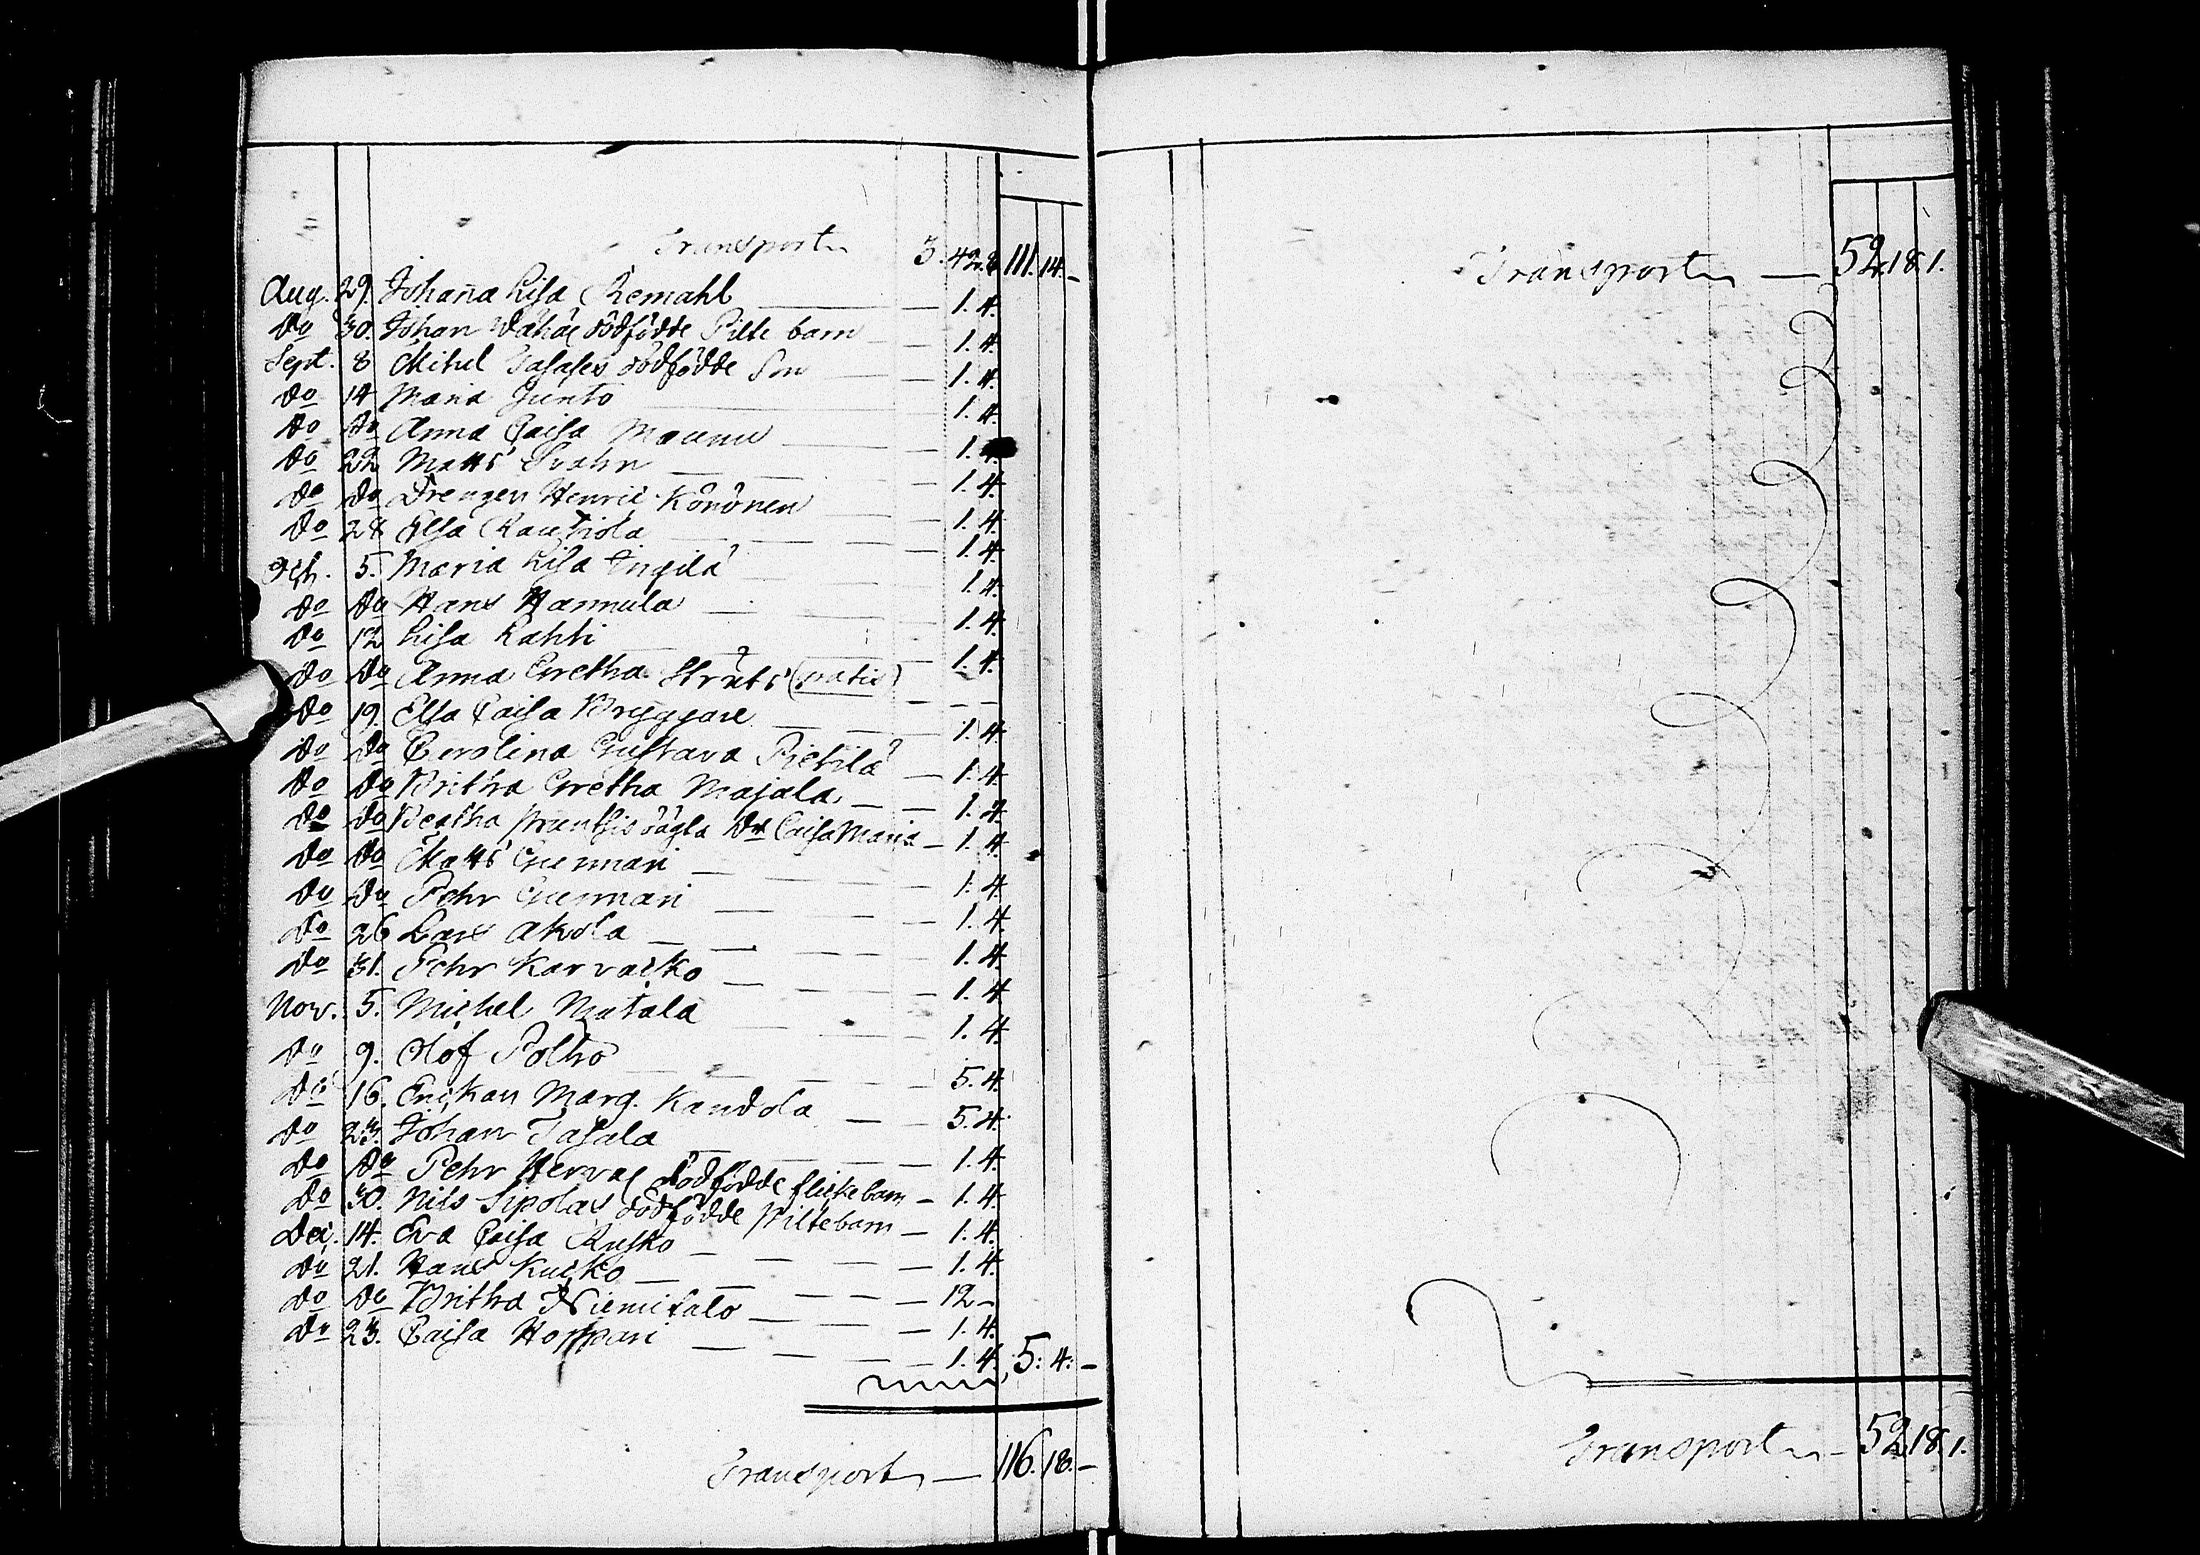 Transport 3. 42. 8 111. 14. -
Aug. 29. Johanna Lisa Remahl — 1. 4.
Do 30. Johan dödfödde Pilte barn — 1. 4.
Sept. 8 Mikel dödfödde Son — 1. 4.
Do 14 Maria Junto — 1. 4.
Do Do Anna Caisa Maunu — 1. 4.
Do 22 Matts Svahn — 1. 4.
Do Do Drengen Henric Könönen — 1. 4.
Do 28 Elsa Rautiola — 1. 4.
5. Maria Lisa Ingilä — 1. 4.
Do Do Hans Hannula — 1. 4.
Do 12 Lisa Lahti — 1. 4.
Do Do Anna Gretha (gratis) — — —
Do 19. Elsa Caisa Bryggare — 1. 4
Do Do Carolina Gustava Pietilä — 1. 4
Do Do Britha Gretha Majala — 1. 4.
Do Do Beatha Dr Caisa Maria — 1. 4.
Do Do Matts Gunnari — 1. 4.
Do Do Pehr Gunnari — 1. 4.
Do 26 Lars Akola — 1. 4.
Do 31. Pehr Karvaisko — 1. 4
Nov. 5. Michel Matala — 1. 4.
Do 9. Olof Polho — 5. 4.
Do 16. Enkan Marg. Kandola — 5. 4.
Do 23. Johan Tasala — 1. 4.
Do Do Pehr dödfödde flickebarn — 1. 4.
Do 30. Nils Sipolas dödfödde piltebarn — 1. 4.
Dec. 14. Eva Caisa Rusko — 1. 4.
Do 21. Hans Kusko — 12 -
Do Do Britha Niemitalo — 1. 4.
Do 23. Caisa Hoppari — 1. 4. 5: 4: -
Transport — 116. 18. -
Transport — 52. 18. 1.
Transport — 52. 18. 1.